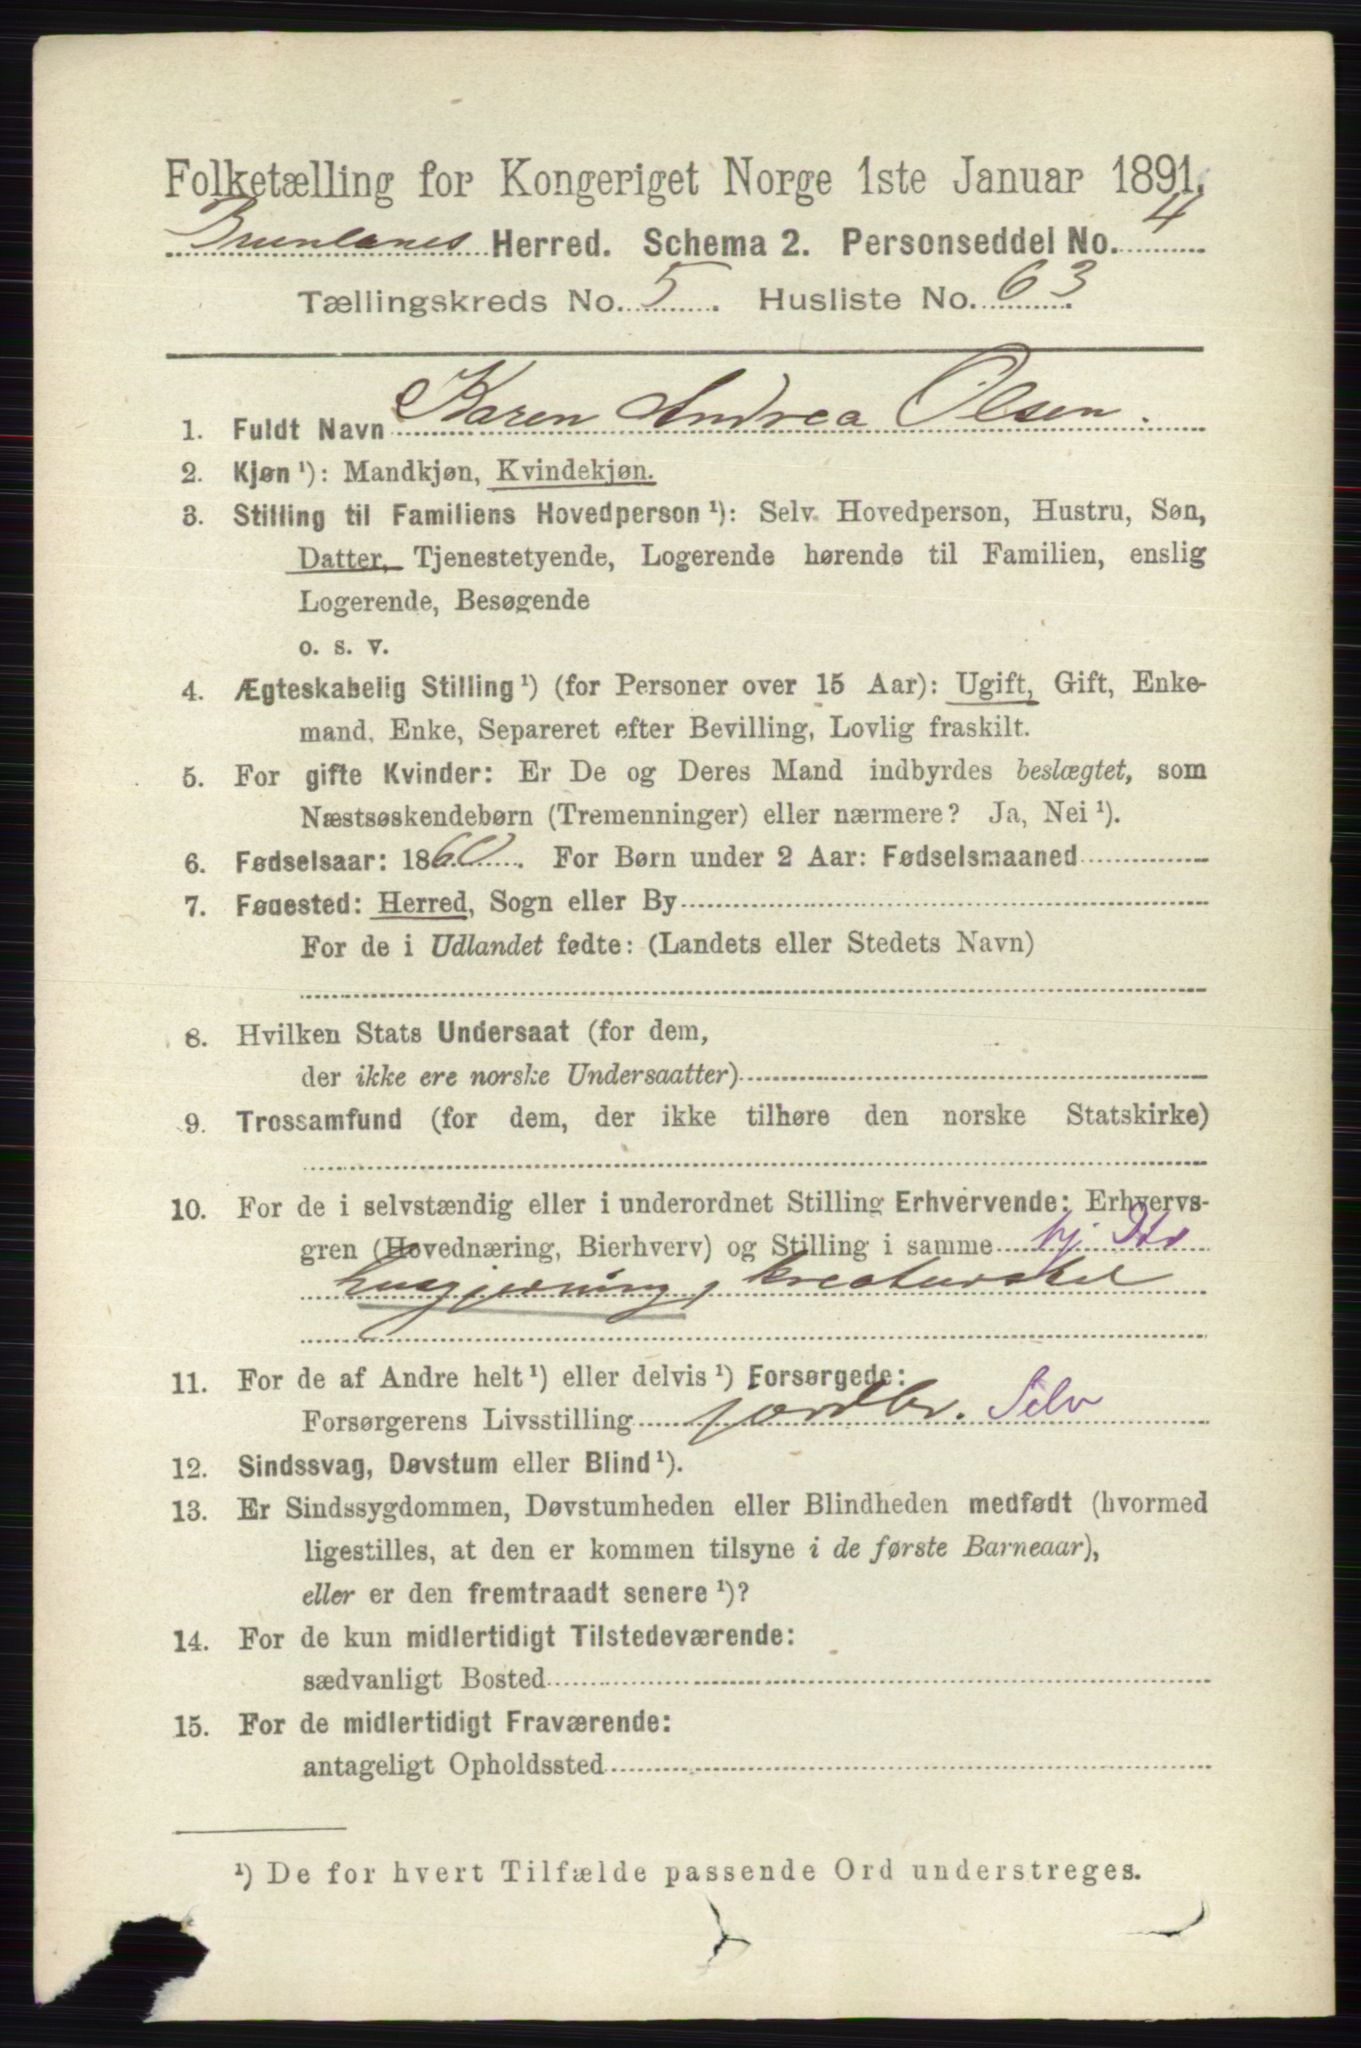 Folketælling for Kongeriget Norge 1ste Januar 1891.
Brunlanes Herred. Schema 2. Personseddel No. 4
Tællingskreds No. 5. Husliste No. 63
1. Fuldt Navn Karen Andrea Olsen.
2. Kjøn ¹): Mandkjøn, Kvindekjøn.
3. Stilling til Familiens Hovedperson ¹): Selv Hovedperson, Hustru, Søn,
Datter, Tjenestetyende, Logerende hørende til Familien, enslig
Logerende, Besøgende
o. s. v.
4. Ægteskabelig Stilling ¹) (for Personer over 15 Aar): Ugift, Gift, Enke-
mand, Enke, Separeret efter Bevilling, Lovlig fraskilt.
5. For gifte Kvinder: Er De og Deres Mand indbyrdes beslægtet, som
Næstsøskendebørn (Tremenninger) eller nærmere? Ja, Nei ¹).
6. Fødselsaar: 1860. For Børn under 2 Aar: Fødselsmaaned
7. Fødested: Herred, Sogn eller By
For de i Udlandet fødte: (Landets eller Stedets Navn)
8. Hvilken Stats Undersaat (for dem,
der ikke ere norske Undersaatter)
9. Trossamfund (for dem, der ikke tilhøre den norske Statskirke)
10. For de i selvstændig eller i underordnet Stilling Erhvervende: Erhvervs-
gren (Hovednæring, Bierhverv) og Stilling i samme hj.
husgjerning, kreaturstel
11. For de af Andre helt ¹) eller delvis ¹) Forsørgede:
Forsørgerens Livsstilling jordbr. Selv
12. Sindssvag, Døvstum eller Blind ¹).
13. Er Sindssygdommen, Døvstumheden eller Blindheden medfødt (hvormed
ligestilles, at den er kommen tilsyne i de første Barneaar),
eller er den fremtraadt senere ¹)?
14. For de kun midlertidigt Tilstedeværende:
sædvanligt Bosted
15. For de midlertidigt Fraværende:
antageligt Opholdssted
¹) De for hvert Tilfælde passende Ord understreges.